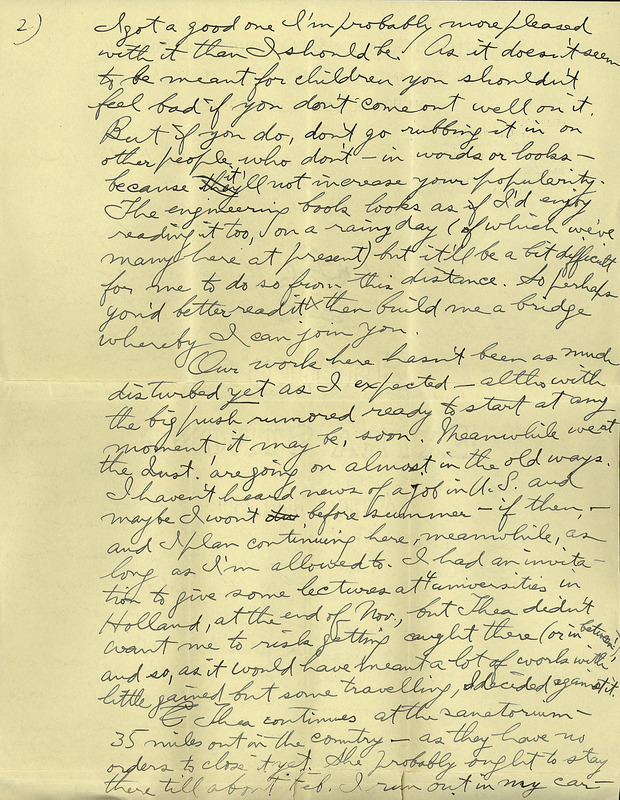 2)
I got a good one I'm probably more pleased
with it than I should be. As it doesn't seem
to be meant for children you shouldn't
feel bad if you don't come out well on it.
But if you do, don't go rubbing it in on
other people who don't – in words or looks –
because they it'll not increase your popularity.
The engineering book looks as if I'd enjoy
reading it too, on a rainy day (of which we've
many here at present) but it'll be a bit difficult
for me to do so from this distance. So perhaps
you'd better read it & then build me a bridge
whereby I can join you.
Our work here hasn't been as much
disturbed yet as I expected – altho with
the big push rumored ready to start at any
moment it may be, soon. Meanwhile we at
the Inst. are going on almost in the old ways.
I haven't heard news of a job in U.S. and
maybe I won't before summer – if then, –
and I plan continuing here, meanwhile, as
long as I'm allowed to. I had an invita-
tion to give some lectures at 4 universities in
Holland, at the end of Nov., but Thea didn't
want me to risk getting caught there (or in between)
and so, as it would have meant a lot of work with
little gained but some travelling, I decided against it.
Thea continues at the sanatorium –
35 miles out in the country – as they have no
orders to close it yet. She probably ought to stay
there till about Feb. I run out in my car –